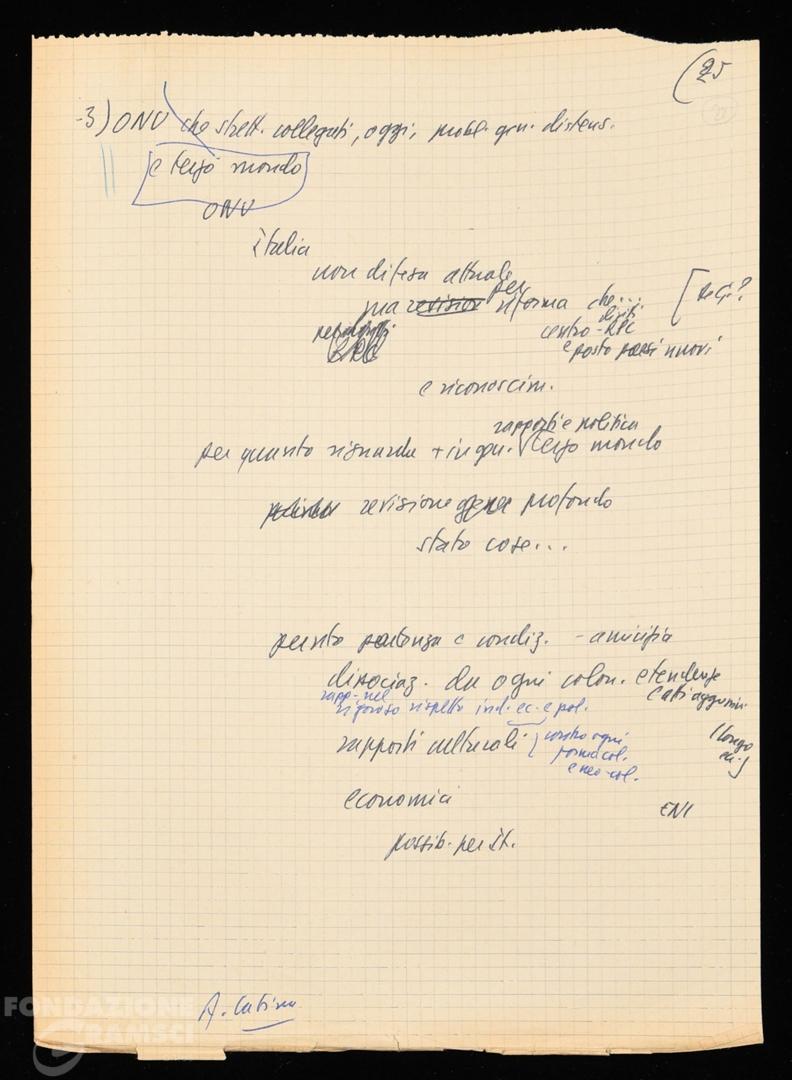 (25
3) ONU che strett. collegati, oggi, probl. gen. distens.
e terzo mondo
ONU
Italia
non difesa attuale
ma revision per riforma che...
[De G.?
diritti
centro - RPC
e posto paesi nuovi
RPC
e riconoscim.
rapporti e politica
per quanto riguarda + in gen. √ terzo mondo
revisione gene profondo
stato cose...
e condiz. - amicizia
dissociaz. da ogni colon. e tendenze
e atti aggressivi
rapp. nel
rigoroso rispetto ind. ec. e pol.
rapporti culturali { contro ogni
forma col.
e neo-col.
(Longo
economici
ENI
possib. per It.
A. Latina
FONDAZIONE
GRAMSCI